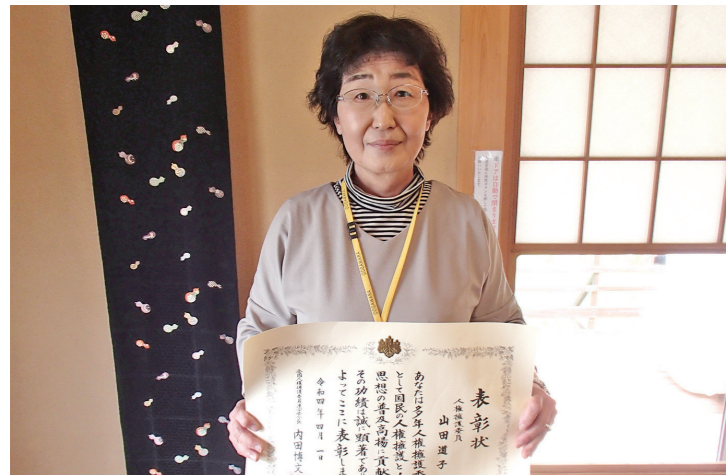 表彰状
人権擁護委員
山田道子
あなたは多年人権擁護委
として国民の人権擁護と
思想の普及高揚に貢献
その功績は誠に顕著であ
よってここに表彰しま
令和四年四月一日
内田博文